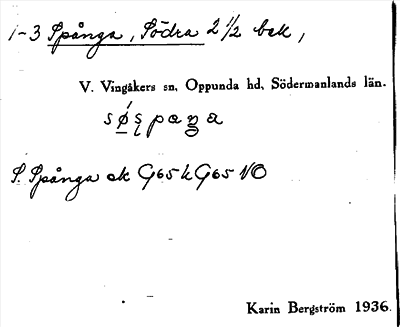 1-3 Spånga, Södra 2 1/2 bek,
V. Vingåkers sn, Oppunda hd, Södermanlands län.
S. Spånga ek G65 h G65 NO
Karin Bergström 1936.